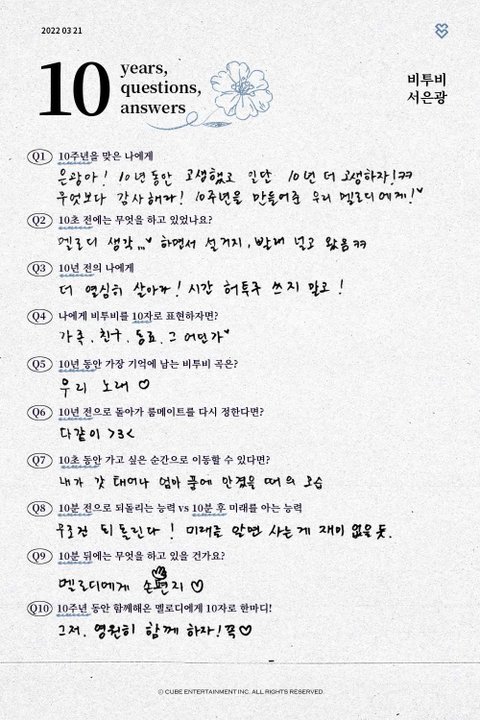 2022 03 21
10 years,
questions,
answers
비투비
서은광
Q1 10주년을 맞은 나에게
은광아! 10년 동안 고생했고 일단 10년 더 고생하자!ㅋㅋ
무엇보다 감사해라! 10주년을 만들어준 우리 멜로디에게!♥
Q2 10초 전에는 무엇을 하고 있었나요?
멜로디 생각...♥ 하면서 설거지, 빨래 널고 왔음ㅋㅋ
Q3 10년 전의 나에게
더 열심히 살아라! 시간 허투루 쓰지 말고!
Q4 나에게 비투비를 10자로 표현하자면?
가족.친구.동료.그 어딘가♥
Q5 10년 동안 가장 기억에 남는 비투비 곡은?
우리 노래 ♡
Q6 10년 전으로 돌아가 룸메이트를 다시 정한다면?
다같이 >3<
Q7 10초 동안 가고 싶은 순간으로 이동할 수 있다면?
내가 갓 태어나 엄마 품에 안겼을 때의 모습
Q8 10분 전으로 되돌리는 능력 vs 10분 후 미래를 아는 능력
무조건 되돌린다! 미래를 알면 사는게 재미 없을 듯.
Q9 10분 뒤에는 무엇을 하고 있을 건가요?
멜로디에게 손편지 ♡
Q10 10주년 동안 함께해온 멜로디에게 10자로 한마디!
그저. 영원히 함께 하자!쪽♡
© CUBE ENTERTAINMENT INC. ALL RIGHTS RESERVED